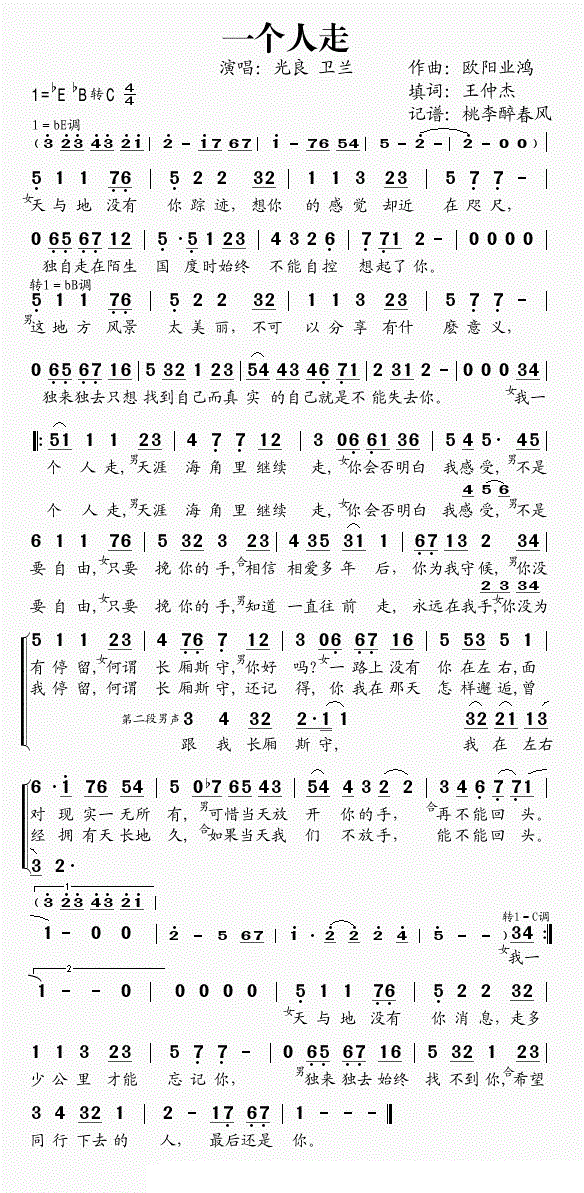 一个人走
演唱：光良 卫兰 作曲：欧阳业鸿
1=♭E ♭B转C 4/4 填词：王仲杰
记谱：桃李醉春风
1=bE调
（3 23 43 21 | 2 - 17 67 | 1 · 1 76 54 | 5 - 2 - | 2 - 0 0）|
5 1 1 76 | 5 2 2 32 | 1 1 3 23 | 5 7 7 - |
女天与地 没有 你踪迹，想你 的感觉 却近 在咫尺，
0 65 67 12 | 5 · 5 1 23 | 4 32 6 | 7 71 2 - | 0 0 0 0 |
独自走在陌生 国 度时始终 不能自控 想起了你。
转1=bB调
5 1 1 76 | 5 2 2 32 | 1 1 3 23 | 5 7 7 - |
男这地方 风景 太美丽，不可 以分享 有什 麽意义，
0 65 67 16 | 5 32 1 23 | 54 43 46 71 | 2 31 2 - | 0 0 0 34 |
独来独去只想 找到自己而真 实 的自己就是不能失去你。 女我一
‖: 51 1 1 23 | 4 7 7 12 | 3 06 61 36 | 5 4 5· 45 |
个 人走，男天涯 海角里继续 走，女你会否明白 我感受，男不是
4 5 6
个 人走，男天涯 海角里继续 走，女你会否明白 我感受，男不是
6 1 1 76 | 5 32 3 23 | 4 35 31 1 | 67 13 2 34 |
要自由，女只要 挽你的手，合相信 相爱多年 后， 你为我守候，男你没
2 3 34
要自由，女只要 挽你的手，男知道 一直往前 走， 永远在我手，女你没为
5 1 1 23 | 4 76 7 12 | 3 06 67 16 | 5 53 5 1 |
有停留，女何谓 长厢斯守，男你好 吗？女一路上没有 你在左右，面
我停留，女何谓 长厢斯守，还记 得，你我在那天 怎样邂逅，曾
第二段男声 3 4 32 2·1 1 32 21 13
跟 我 长厢 斯守， 我 在 左右
6 · 1 76 54 | 5 0♭7 65 43 | 54 4 32 2 | 34 6 7 71 |
对 现 实一无所 有，男可惜当天放 开 你的手， 合再不能回头。
经 拥有天长地 久，合如果当天我 们 不放手， 能不能回头。
3 2·
1
（3 23 43 21
1 - 0 0 | 2 - 5 67 | 1 · 2 2 2 4 | 5 - - ）34 :‖
转1=C调
女我一
2
1 - - 0 | 0 0 0 0 | 5 1 1 76 | 5 2 2 32 |
女天与地 没有 你消息，走多
1 1 3 23 | 5 7 7 - | 0 65 67 16 | 5 32 1 23 |
少公里 才能 忘记你， 男独来独去始终 找不到你，合希望
3 4 32 1 | 2 - 17 67 | 1 - - ‖
同行下去的 人， 最后还是 你。